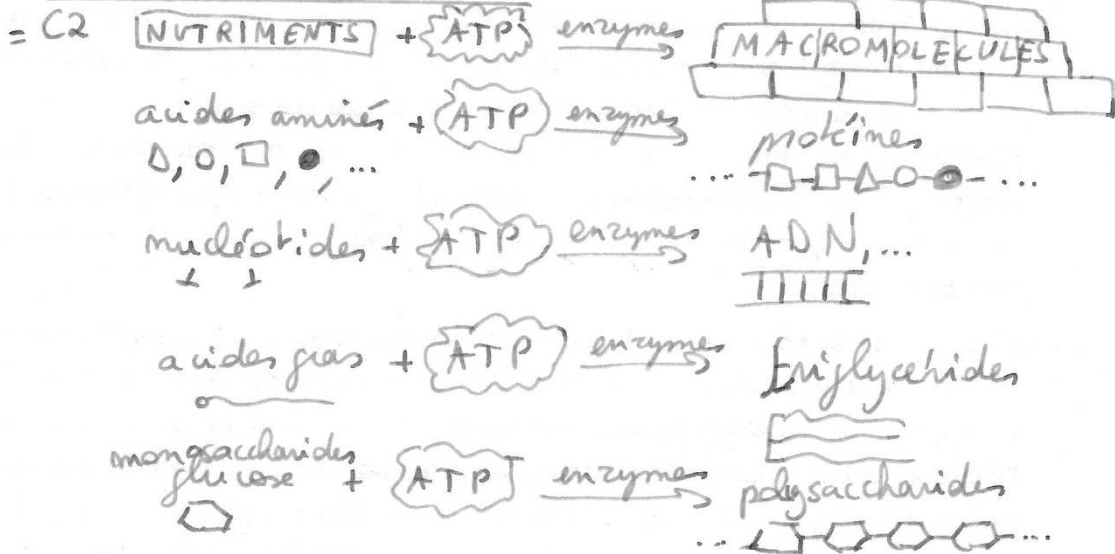 = C2 NUTRIMENTS + ATP enzymes MACROMOLECULES
acides aminés + ATP enzymes protéines
, , , , ... ... - - - - - - ...
nucléotides + ATP enzymes ADN,...
acides gras + ATP enzymes triglycérides
monosaccharides
glucose + ATP enzymes polysaccharides
... ...